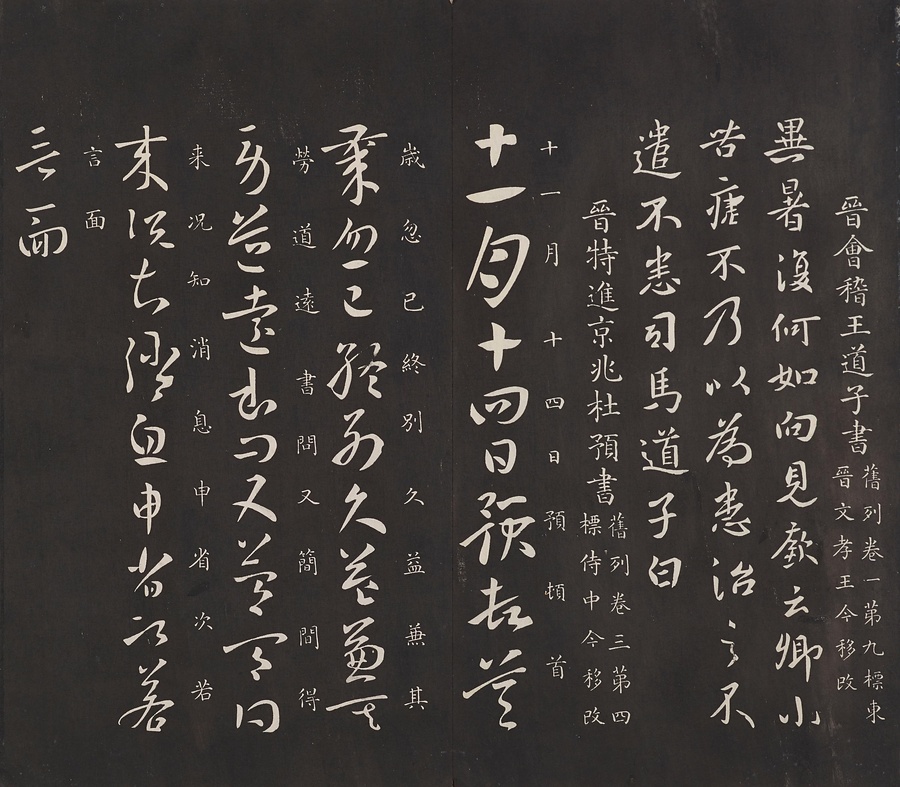 晉會稽王道子書
舊列卷一第九標東
晉文孝王今移改
異暑復何如向見欽云卿小
苦瘧不乃以為患治之不
遣不悉司馬道子白
晉特進京兆杜預書
舊列卷三第四
標侍中今移改
十一月十四日預頓首
十一月十四日預頓首
歲忽已終別久益兼其
歲忽已終別久益兼其
勞道遠書問又簡間得
勞道遠書問又簡間得
来况知消息申省次若
来况知消息申省次若
言面
言面